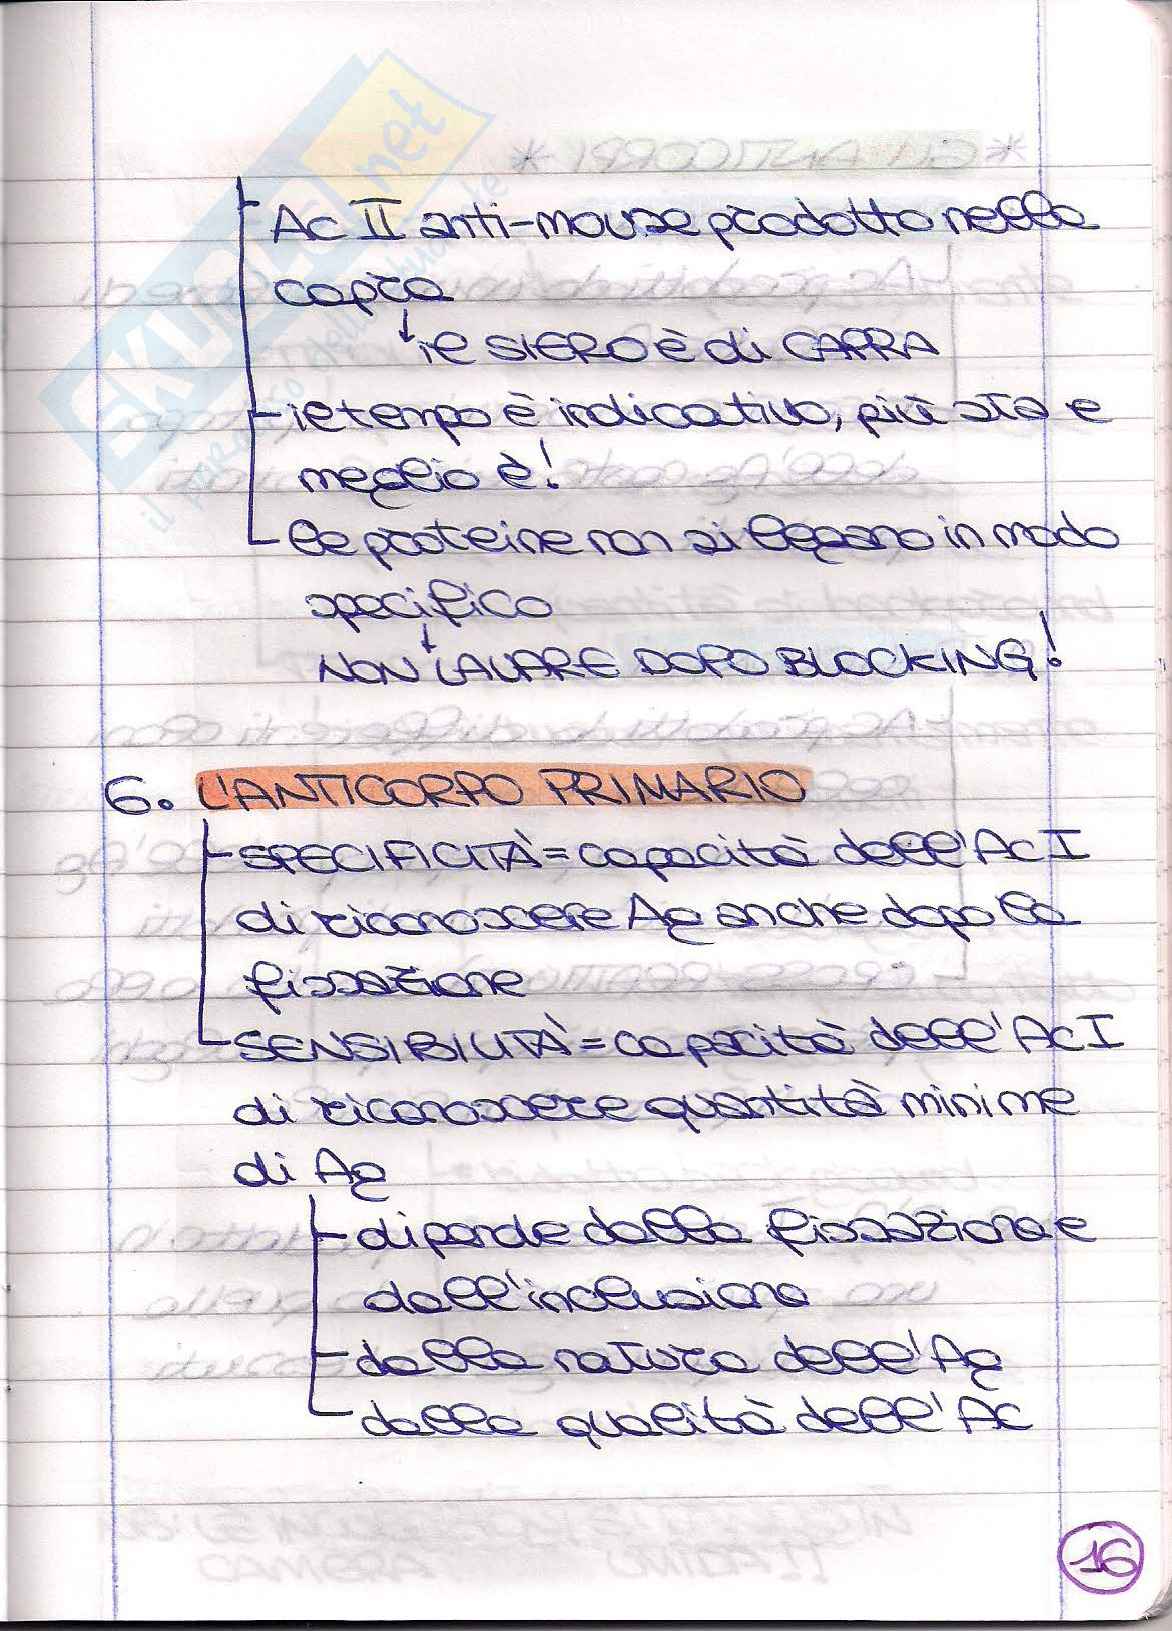 Ac II anti-mouse prodotto nella
capra
↓ il SIERO È di CAPRA
il tempo è indicativo, più sta e
meglio è!
le proteine non si legano in modo
specifico
↓
NON LAVARE DOPO BLOCKING!
6. L'ANTICORPO PRIMARIO
SPECIFICITÀ = capacità dell'Ac I
di riconoscere Ag anche dopo la
fissazione
SENSIBILITÀ = capacità dell'Ac I
di riconoscere quantità minime
di Ag
dipende dalla fissazione e
dall'inclusione
dalla natura dell'Ag
dalla qualità dell'Ac
16
SKUOLA.net
il paradiso dello studente